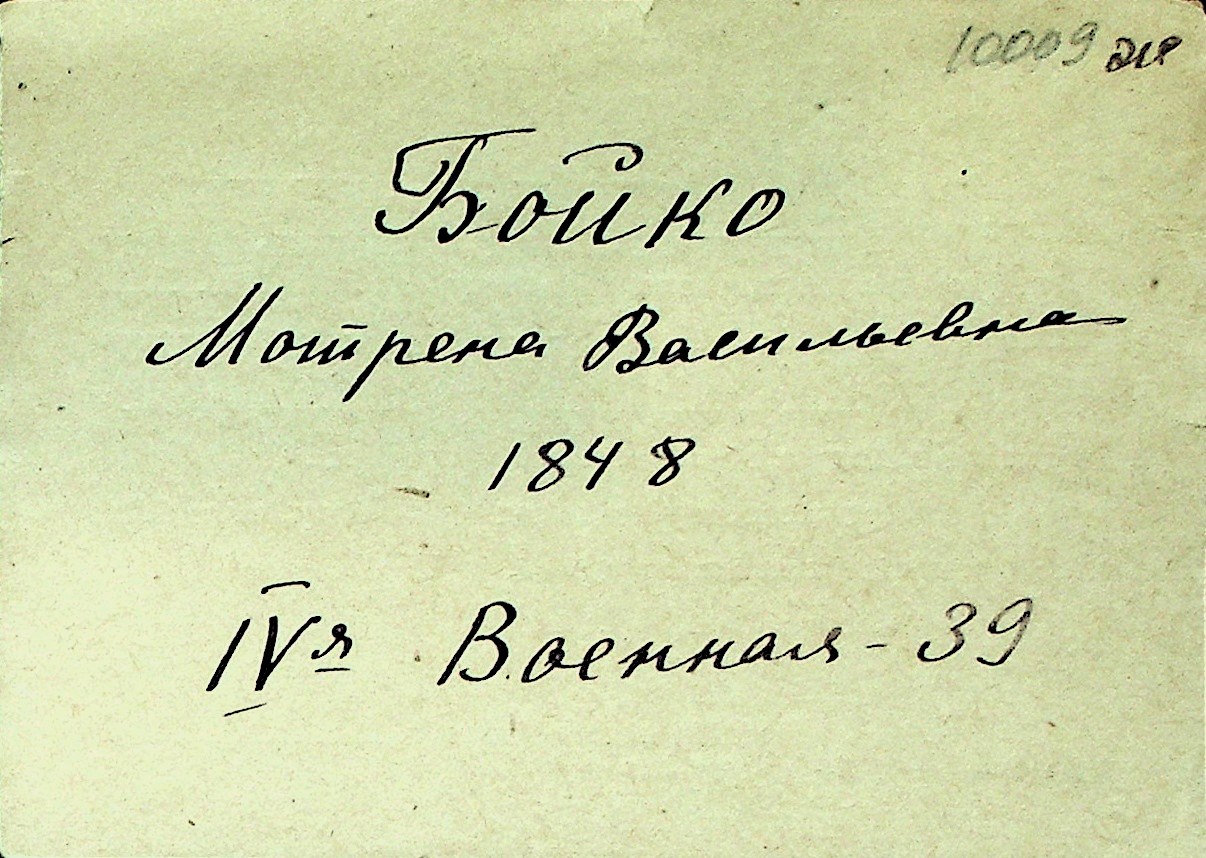 10009
Бойко
Мотрена Васильевна
1848
IVя Военная - 39